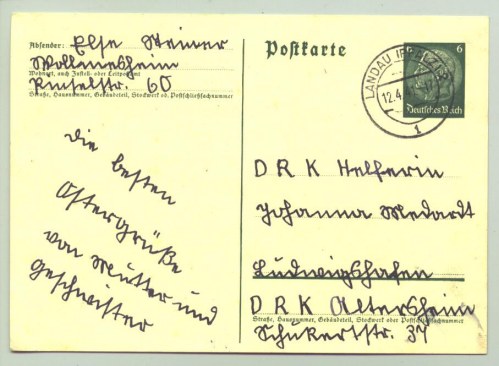 Absender: Else Steiner
Wollmesheim
Wohnort, auch Zustell- oder Leitpostamt
60
Straße, Hausnummer, Gebäudeteil, Stockwerk od. Postschließfachnummer
die besten
Ostergrüße
von Mutter und
Geschwister
Postkarte
6
Deutsches Reich
LANDAU (PFALZ)
12.4.
1
DRK Helferin
Johanna Medardt
Ludwigshafen
DRK Altersheim
Straße, Hausnummer, Gebäudeteil, Stockwerk oder Postschließfachnummer
Schukertstr. 37